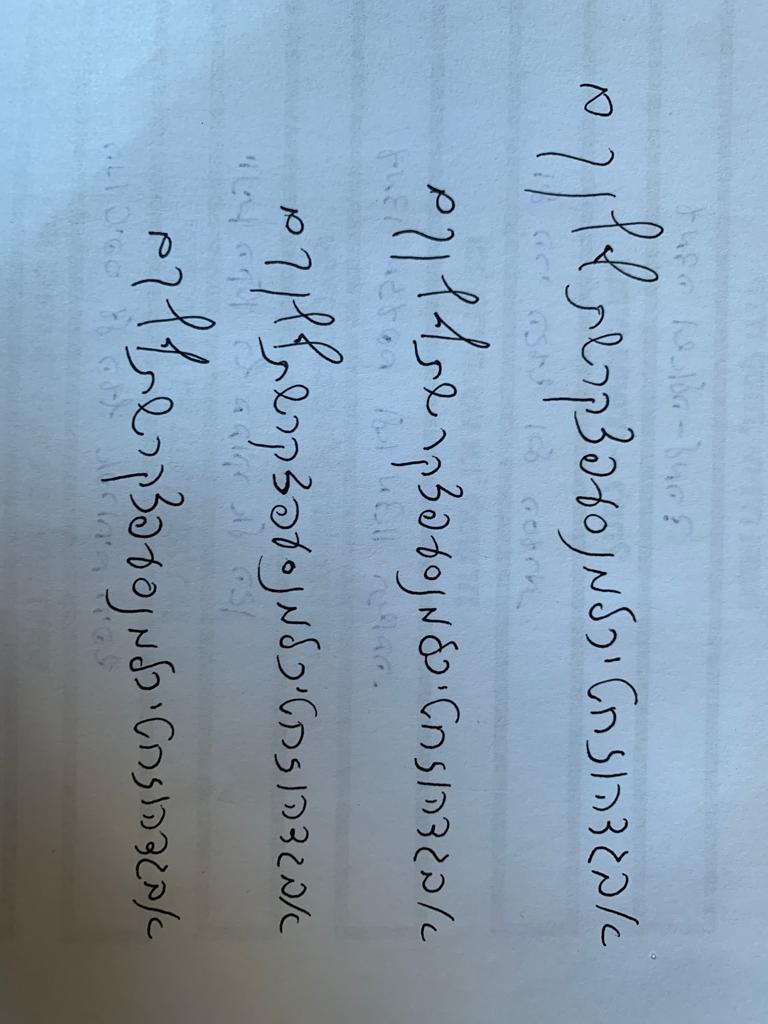 אבגדהוזחטיכלמנסעפצקרשת ף ץ ן ך ם
אבגדהוזחטיכלמנסעפצקרשת ף ץ ן ך ם
אבגדהוזחטיכלמנסעפצקרשת ף ץ ן ך ם
אבגדהוזחטיכלמנסעפצקרשת ף ץ ך ם